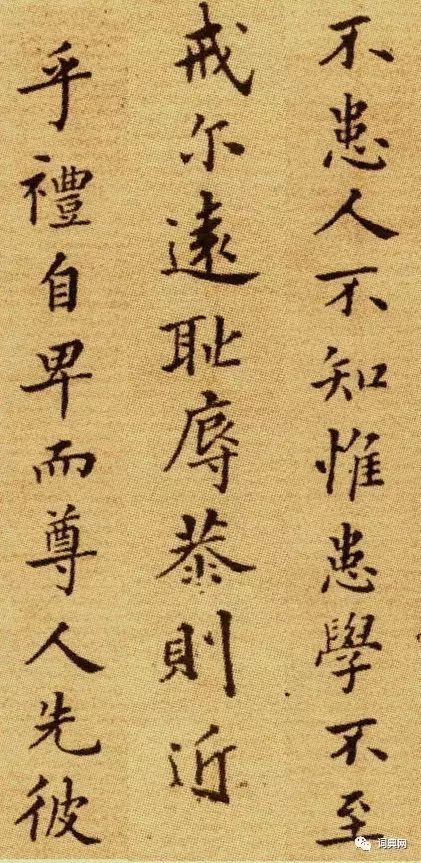 不患人不知惟患學不至
戒尔遠恥辱恭則近
乎禮自卑而尊人先彼
词典网